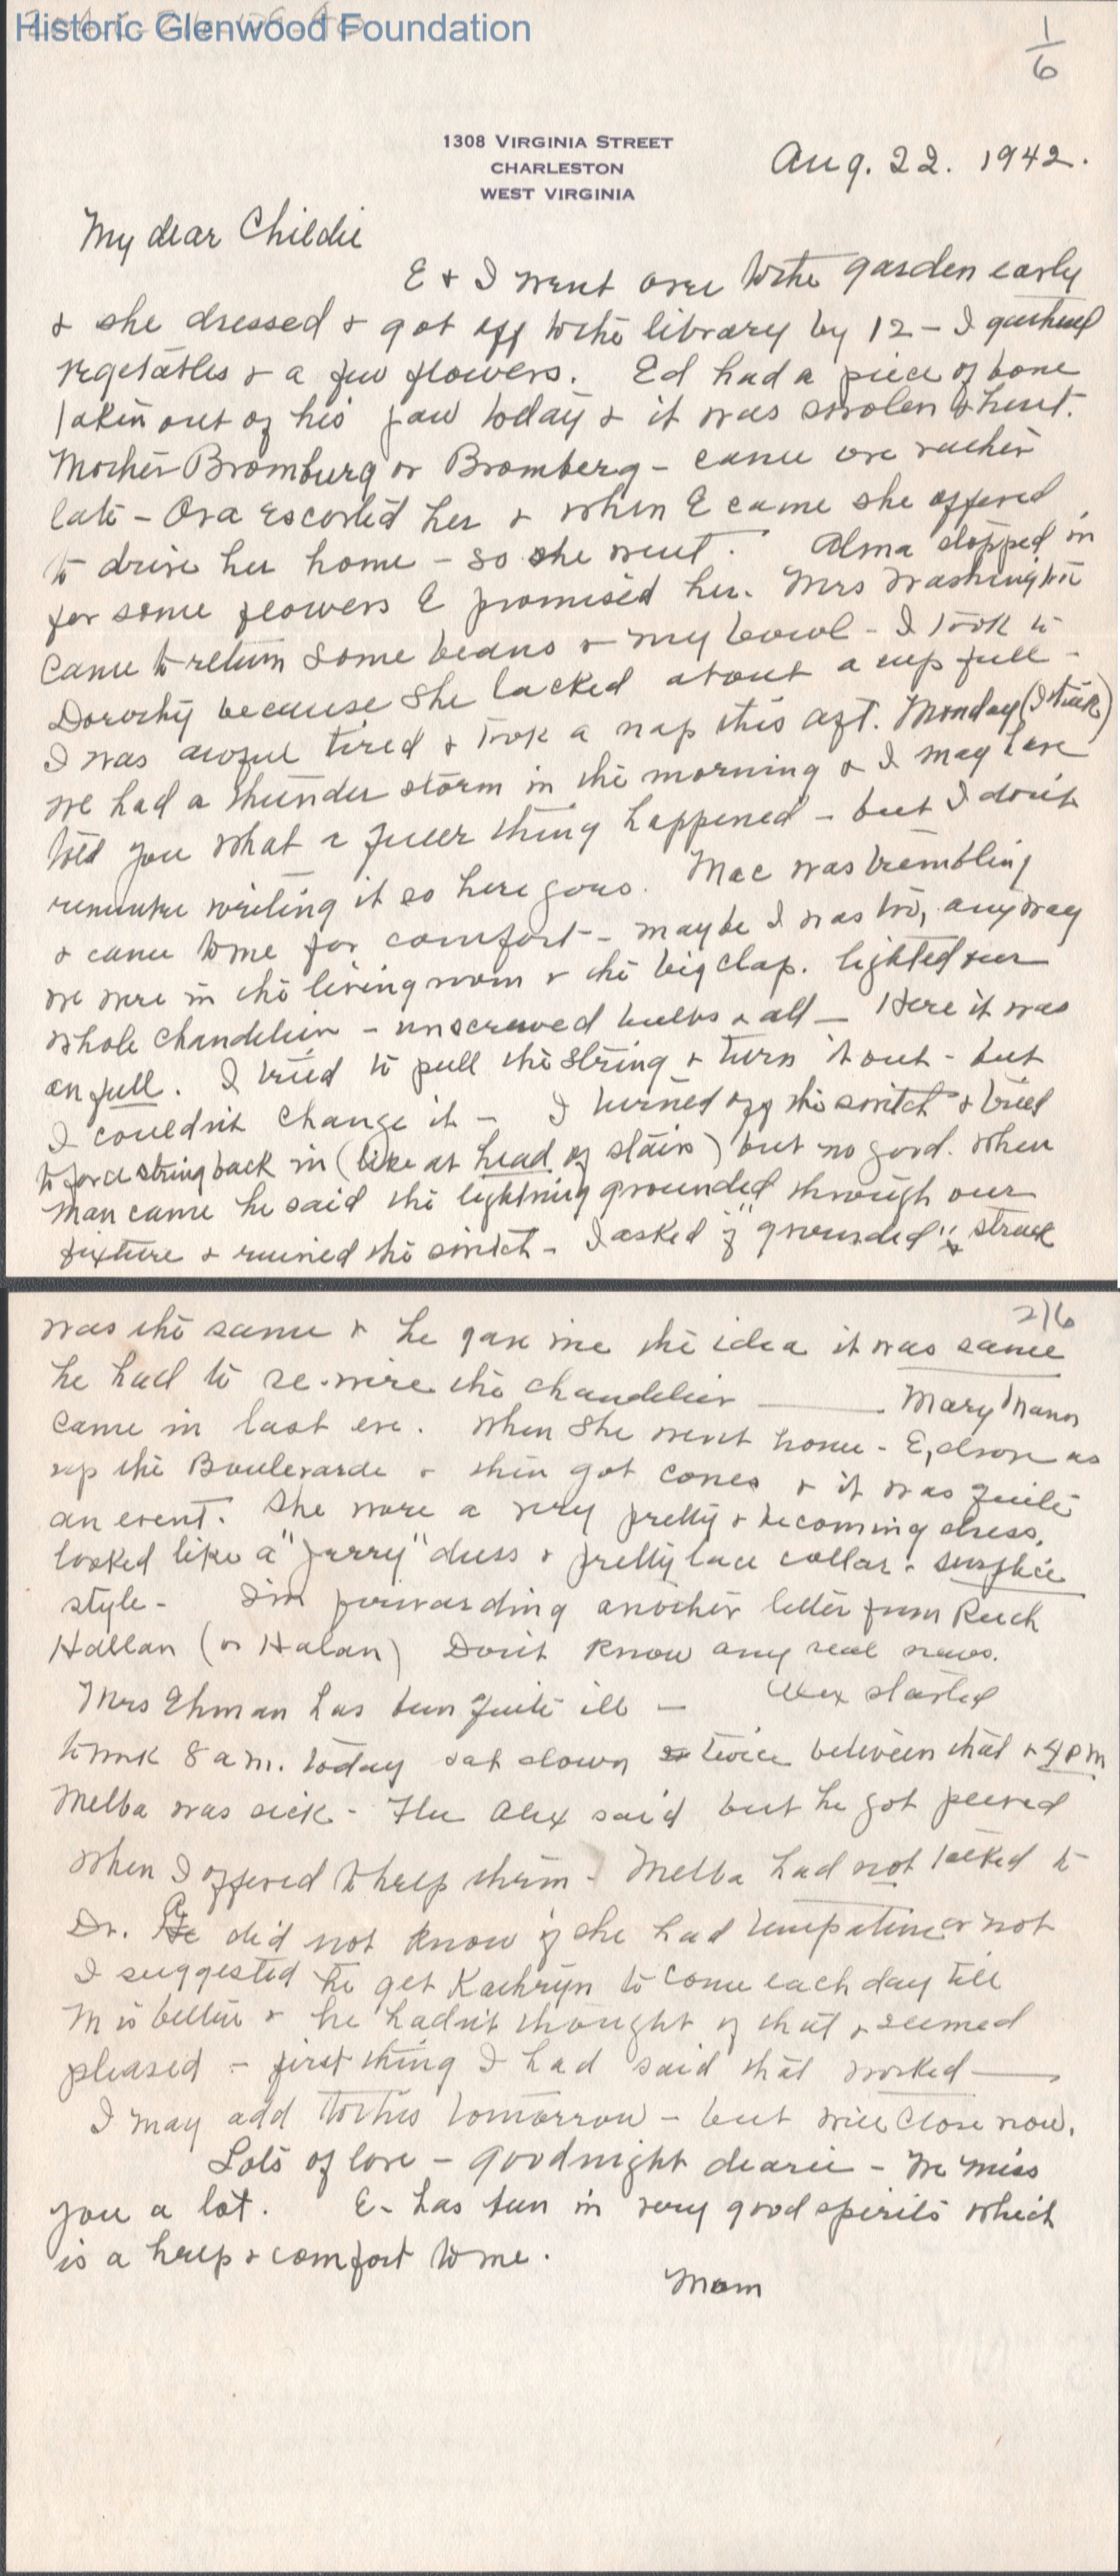 Historic Glenwood Foundation
1/6
1308 VIRGINIA STREET
CHARLESTON
WEST VIRGINIA
Aug. 22. 1942.
My dear Childie
E & I went over to the garden early
& she dressed & got off to the library by 12 – I gathered
vegetables & a few flowers. Ed had a piece of bone
taken out of his jaw today & it was swolen & hurt.
Mother Bromburg or Bromberg – came over rather
late – Ora escorted her & when E came she offered
to drive her home – so she went. Alma stopped in
for some flowers E promised her. Mrs Washington
came to return some beans & my bowl – I took to
Dorothy because she lacked about a cup full –
I was awful tired & took a nap this aft. Monday (I think)
we had a thunder storm in the morning & I may have
told you what a queer thing happened – but I don't
remember writing it so here goes. Mac was trembling
& came to me for comfort – maybe I was too, anyway
we were in the living room & the big clap. lighted our
whole chandelier – unscrewed bulbs & all – Here it was
on full. I tried to pull the string & turn it out – but
I couldn't change it – I turned off the switch & tried
to force string back in (like at head of stairs) but no good. When
man came he said the lightning grounded through our
fixture & ruined the switch – I asked if "grounded" & struck
was the same & he gave me the idea it was same
2/6
he had to re-wire the chandelier —— Mary Nanon
came in last eve. When she went home – E, drove us
up the Boulevarde & then got cones & it was quite
an event. She wore a very pretty & becoming dress,
looked like a "Jerry" dress & pretty lace collar – surplice
style – I'm forwarding another letter from
Hallan (or Halan) Don't know any real news.
Mrs Ehman has been quite ill – Alex started
to work 8 a m. today sat down twice between that & 4 pm
Melba was sick – Flu Alex said but he got peeved
when I offered to help them – Melba had not talked to
Dr. A did not know if she had temperature or not
I suggested he get Kathryn to come each day till
M is better & he hadn't thought of that & seemed
pleased – first thing I had said that worked ——
I may add to this tomorrow – but will close now.
Lots of love – goodnight dearie – We miss
you a lot. E – has been in very good spirits which
is a help & comfort to me.
Mom